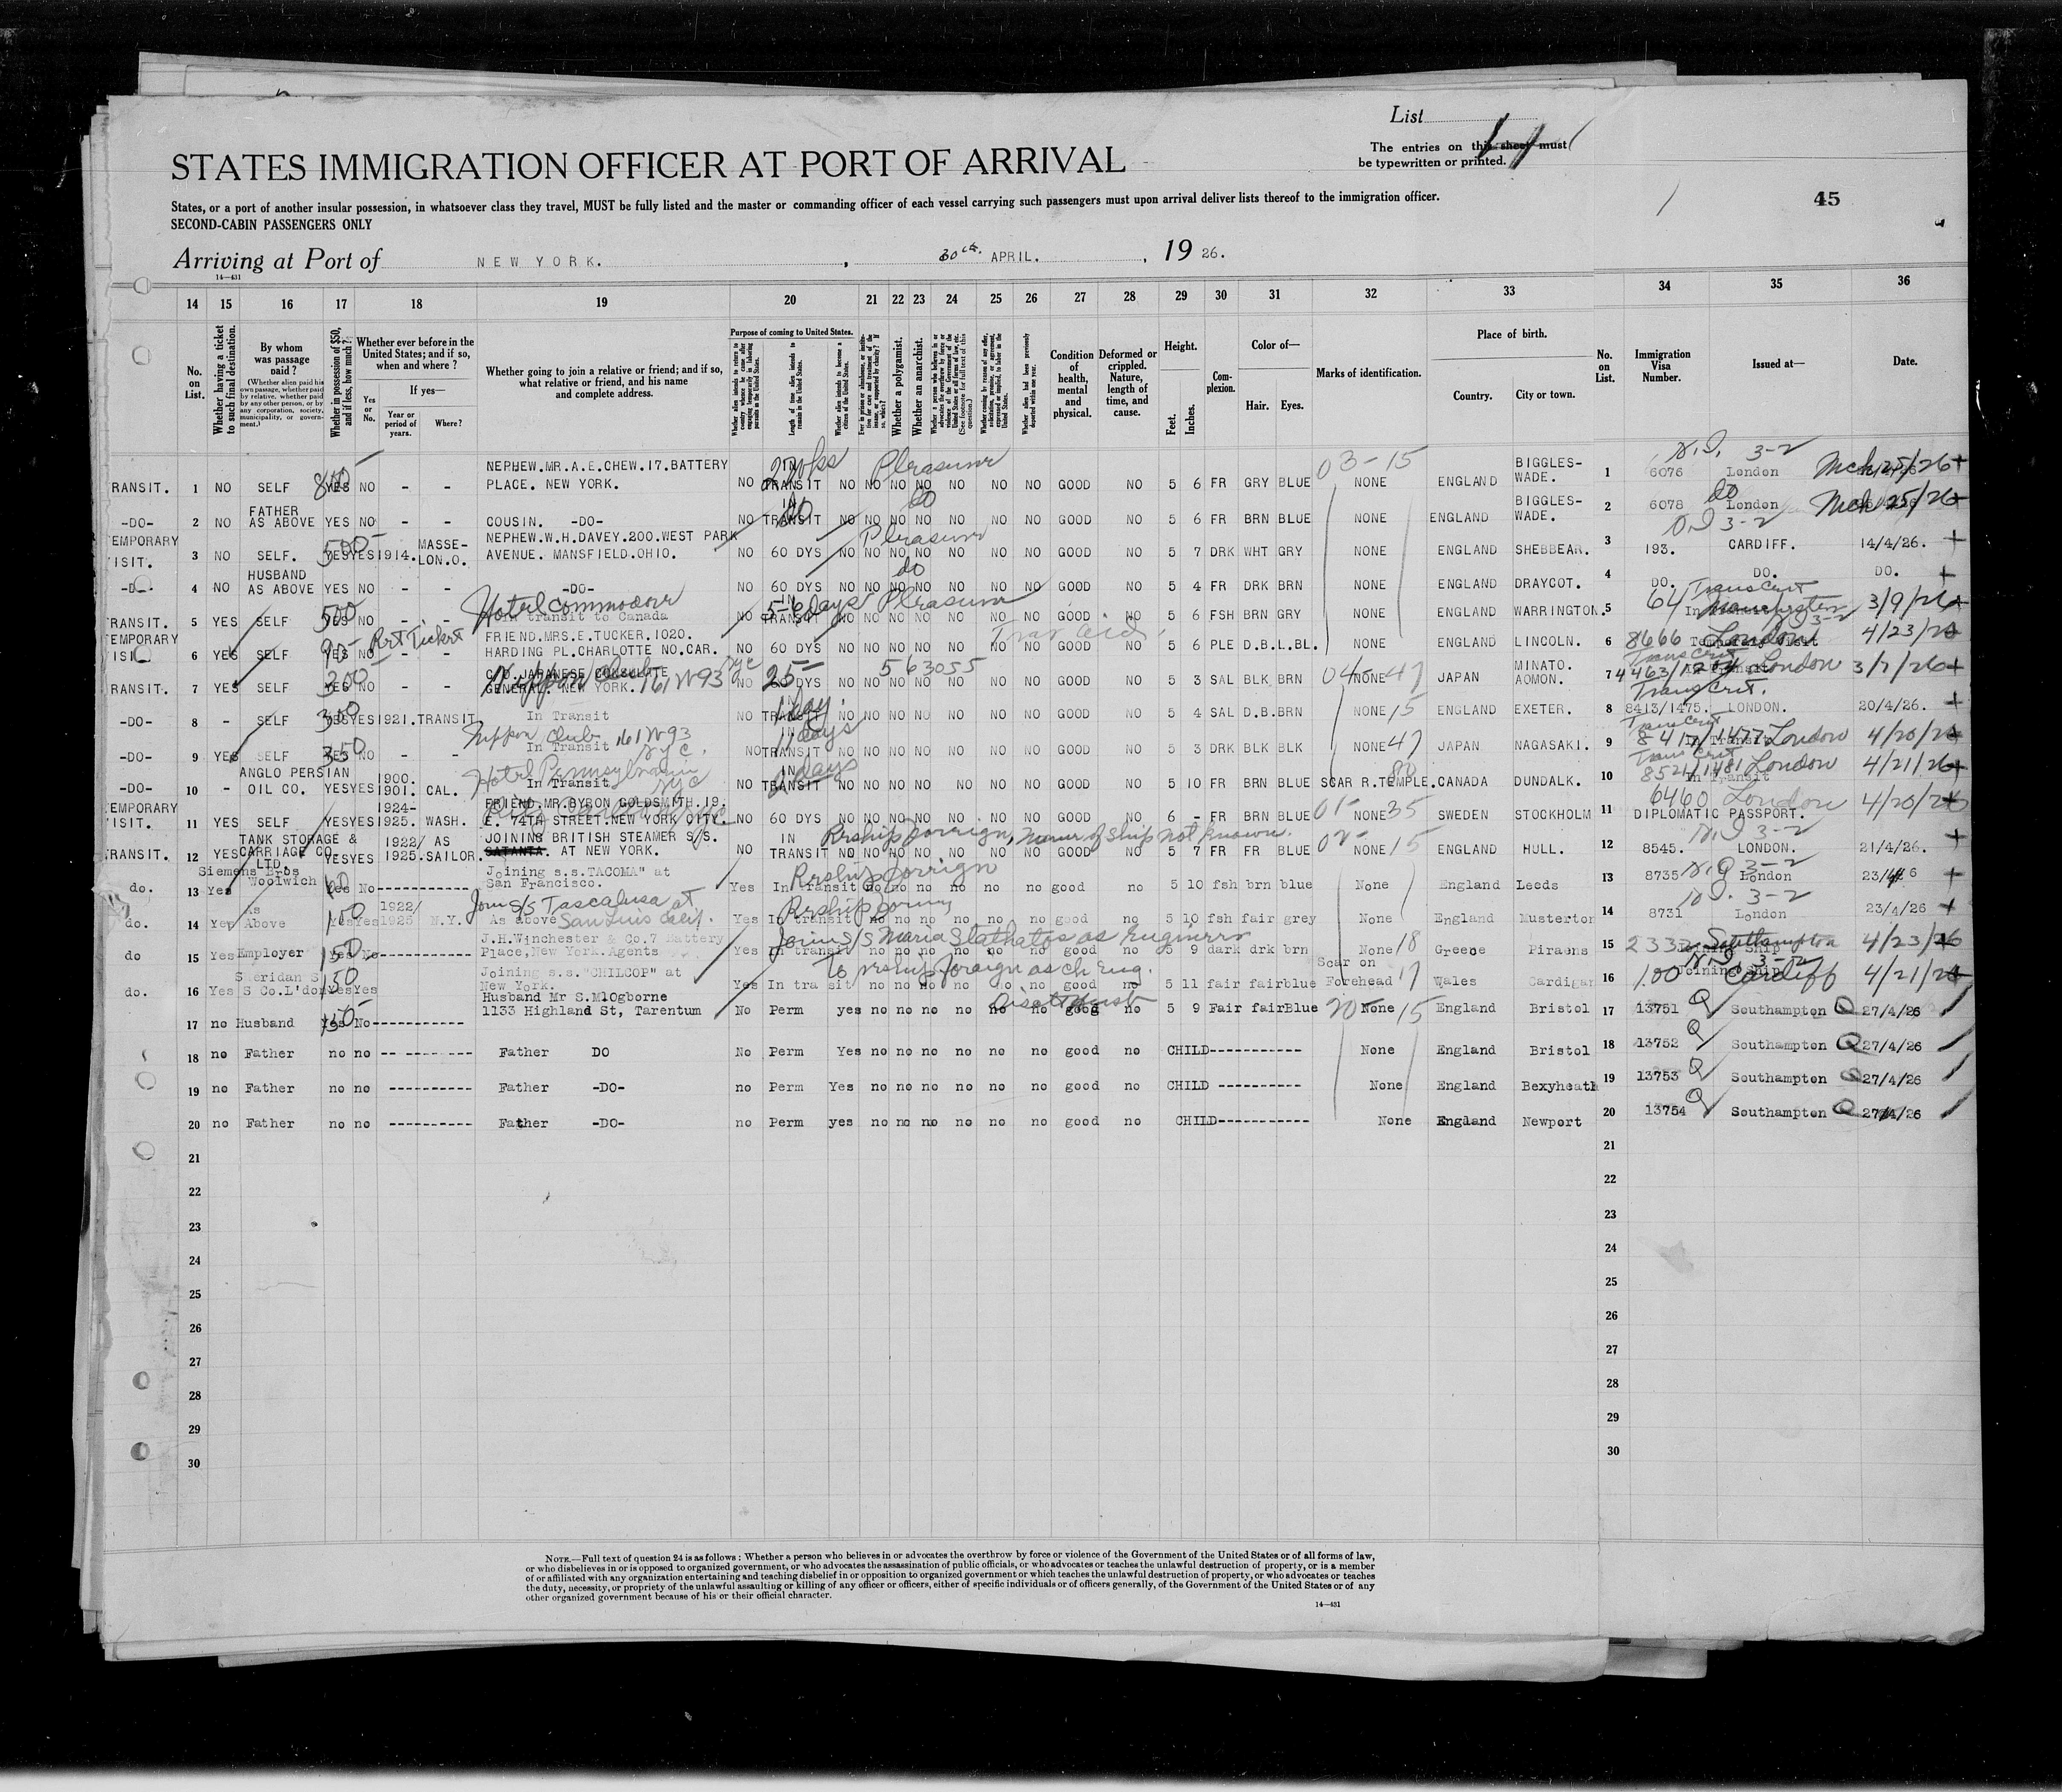 List
The entries on this sheet must
be typewritten or printed.
STATES IMMIGRATION OFFICER AT PORT OF ARRIVAL
45
States, or a port of another insular possession, in whatsoever class they travel, MUST be fully listed and the master or commanding officer of each vessel carrying such passengers must upon arrival deliver lists thereof to the immigration officer.
SECOND-CABIN PASSENGERS ONLY
Arriving at Port of NEW YORK. , 30th. APRIL. , 19 26.
14—431
14 15 16 17 18 19 20 21 22 23 24 25 26 27 28 29 30 31 32 33 34 35 36
No. on List.
Whether having a ticket to such final destination.
By whom was passage paid?
(Whether alien paid his own passage, whether paid by relative, whether paid by any other person, or by any corporation, society, municipality, or government.)
Whether in possession of $50, and if less, how much?
Whether ever before in the United States; and if so, when and where?
Yes or No.
If yes—
Year or period of years.
Where?
Whether going to join a relative or friend; and if so, what relative or friend, and his name and complete address.
Purpose of coming to United States.
Length of time alien intends to remain in the United States.
Whether alien intends to become a citizen of the United States.
Whether a polygamist.
Whether an anarchist.
Condition of health, mental and physical.
Deformed or crippled. Nature, length of time, and cause.
Height.
Feet. Inches.
Complexion.
Color of—
Hair. Eyes.
Marks of identification.
Place of birth.
Country. City or town.
No. on List.
Immigration Visa Number.
Issued at—
Date.
NEPHEW.MR.A.E.CHEW.17.BATTERY Pleasure 03-15 BIGGLES-
RANSIT. 1 NO SELF YES NO - - PLACE. NEW YORK. NO TRANSIT NO NO NO NO NO NO NO GOOD NO 5 6 FR GRY BLUE NONE ENGLAND WADE. 1 6076 London Mch 25/26
FATHER do BIGGLES-
-DO- 2 NO AS ABOVE YES NO - - COUSIN. -DO- NO TRANSIT NO NO NO NO NO NO NO GOOD NO 5 6 FR BRN BLUE NONE ENGLAND WADE. 2 6078 London Mch 25/26
EMPORARY MASSE- NEPHEW.W.H.DAVEY.200.WEST PARK Pleasure
ISIT. 3 NO SELF. YES YES 1914. LON.O. AVENUE. MANSFIELD.OHIO. NO 60 DYS NO NO NO NO NO NO NO GOOD NO 5 7 DRK WHT GRY NONE ENGLAND SHEBBEAR. 3 193. CARDIFF. 14/4/26.
HUSBAND do
-DO- 4 NO AS ABOVE YES NO - - -DO- NO 60 DYS NO NO NO NO NO NO NO GOOD NO 5 4 FR DRK BRN NONE ENGLAND DRAYCOT. 4 DO. DO. DO.
500 Hotel Commodore 5-6 days Pleasure
RANSIT. 5 YES SELF YES NO - - In transit to Canada NO TRANSIT NO NO NO NO NO NO NO GOOD NO 5 6 FSH BRN GRY NONE ENGLAND WARRINGTON. 5 64 Manchester 3/9/26
EMPORARY FRIEND.MRS.E.TUCKER.1020.
ISI 6 YES SELF YES NO - - HARDING PL.CHARLOTTE NO.CAR. NO 60 DYS NO NO NO NO NO NO NO GOOD NO 5 6 PLE D.B. L.BL. NONE ENGLAND LINCOLN. 6 8666 London 4/23/26
300 C/O.JAPANESE CONSULATE 563055 MINATO.
RANSIT. 7 YES SELF YES NO - - GENERAL. NEW YORK. 161 W 93 NO NO NO NO NO NO NO NO GOOD NO 5 3 SAL BLK BRN 04 NONE 47 JAPAN AOMON. 7 London 3/7/26
-DO- 8 - SELF YES YES 1921. TRANSIT In Transit NO TRANSIT NO NO NO NO NO NO NO GOOD NO 5 4 SAL D.B. BRN NONE 15 ENGLAND EXETER. 8 8413/1475. LONDON. 20/4/26.
Nippon Club 161 W 93 NYC.
-DO- 9 YES SELF 350 YES NO - - In Transit NO TRANSIT NO NO NO NO NO NO NO GOOD NO 5 3 DRK BLK BLK NONE 47 JAPAN NAGASAKI. 9 8417/1477 London 4/20/26
ANGLO PERSIAN 1900. Hotel Pennsylvania NYC 2 days
-DO- 10 - OIL CO. YES YES 1901. CAL. In Transit NO TRANSIT NO NO NO NO NO NO NO GOOD NO 5 10 FR BRN BLUE SCAR R.TEMPLE. CANADA DUNDALK. 10 8521/1481 London 4/21/26
EMPORARY 1924- FRIEND.MR.BYRON GOLDSMITH.19. 6460 London 4/20/26
ISIT. 11 YES SELF YES YES 1925. WASH. E. 74TH STREET.NEW YORK CITY. NO 60 DYS NO NO NO NO NO NO NO GOOD NO 6 - FR BRN BLUE 01- NONE 35 SWEDEN STOCKHOLM 11 DIPLOMATIC PASSPORT.
TANK STORAGE & 1922/ AS JOINING BRITISH STEAMER S/S. IN Reship foreign, name of ship not known.
RANSIT. 12 YES CARRIAGE CO LTD. YES YES 1925. SAILOR. SATANTA. AT NEW YORK. NO TRANSIT NO NO NO NO NO NO NO GOOD NO 5 7 FR FR BLUE 02- NONE 15 ENGLAND HULL. 12 8545. LONDON. 21/4/26.
Siemens Bros Joining s.s."TACOMA" at Reship foreign
do. 13 Yes Woolwich Yes No San Francisco. Yes In transit no no no no no no no good no 5 10 fsh brn blue None England Leeds 13 8735 London 23/4/26
As 1922/ Join S/S Tascalusa at San Luis Calif.
do. 14 Yes Above 150 Yes Yes 1925 N.Y. As above Yes In transit no no no no no no no good no 5 10 fsh fair grey None England Musterton 14 8731 London 23/4/26
J.H.Winchester & Co.7 Battery Join S/S Maria Stathatos as Engineer
do 15 Yes Employer 150 Yes No Place,New York.Agents Yes In transit no no no no no no no good no 5 9 dark drk brn None 18 Greece Piraens 15 2332 Southampton 4/23/26
Sheridan S 150 Joining s.s."CHILCOP" at To reship foreign as ch Eng. Scar on
do. 16 Yes S Co.L'don Yes Yes New York. Yes In tra sit no no no no no no no good no 5 11 fair fair blue Forehead 17 Wales Cardigan 16 100 Cardiff 4/21/26
Husband Mr S.MlOgborne
17 no Husband 150 Yes No 1133 Highland St, Tarentum No Perm yes no no no no no no good no 5 9 Fair fair Blue 20 None 15 England Bristol 17 13751 Southampton 27/4/26
18 no Father no no Father DO No Perm Yes no no no no no no good no CHILD None England Bristol 18 13752 Southampton 27/4/26
19 no Father no no Father -DO- no Perm Yes no no no no no no good no CHILD None England Bexyheath 19 13753 Southampton 27/4/26
20 no Father no no Father -DO- no Perm yes no no no no no no good no CHILD None England Newport 20 13754 Southampton 27/4/26
21 21
22 22
23 23
24 24
25 25
26 26
27 27
28 28
29 29
30 30
NOTE.—Full text of question 24 is as follows: Whether a person who believes in or advocates the overthrow by force or violence of the Government of the United States or of all forms of law,
or who disbelieves in or is opposed to organized government, or who advocates the assassination of public officials, or who advocates or teaches the unlawful destruction of property, or is a member
of or affiliated with any organization entertaining and teaching disbelief in or opposition to organized government or which teaches the unlawful destruction of property, or who advocates or teaches
the duty, necessity, or propriety of the unlawful assaulting or killing of any officer or officers, either of specific individuals or of officers generally, of the Government of the United States or of any
other organized government because of his or their official character.
14—431